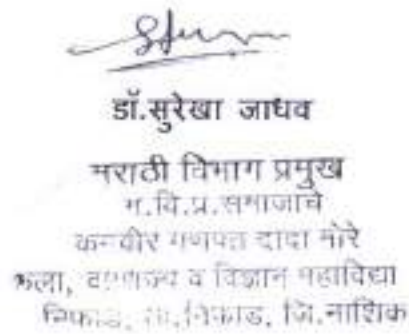 डॉ.सुरेखा जाधव
मराठी विभाग प्रमुख
म.वि.प्र.समाजाचे
कर्मवीर गणपत दादा मोरे
कला, वाणिज्य व विज्ञान महाविद्या
निफाड, ता.निफाड, जि.नाशिक